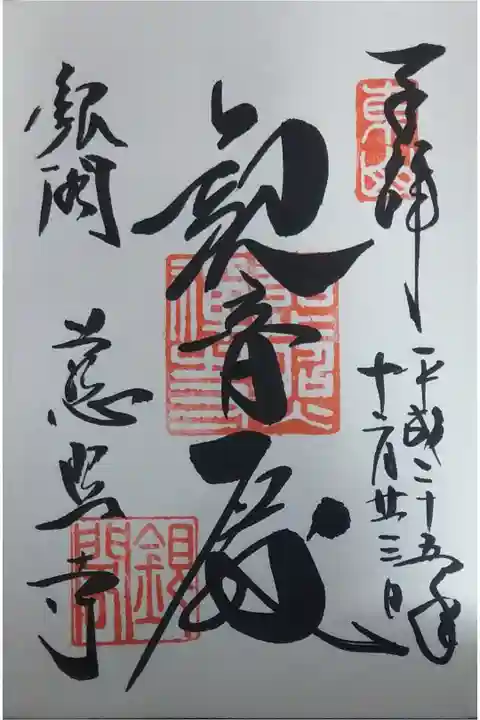 奉拝
平成二十五年
十一月廿三日
東山
観音殿
銀閣
慈照寺
銀閣